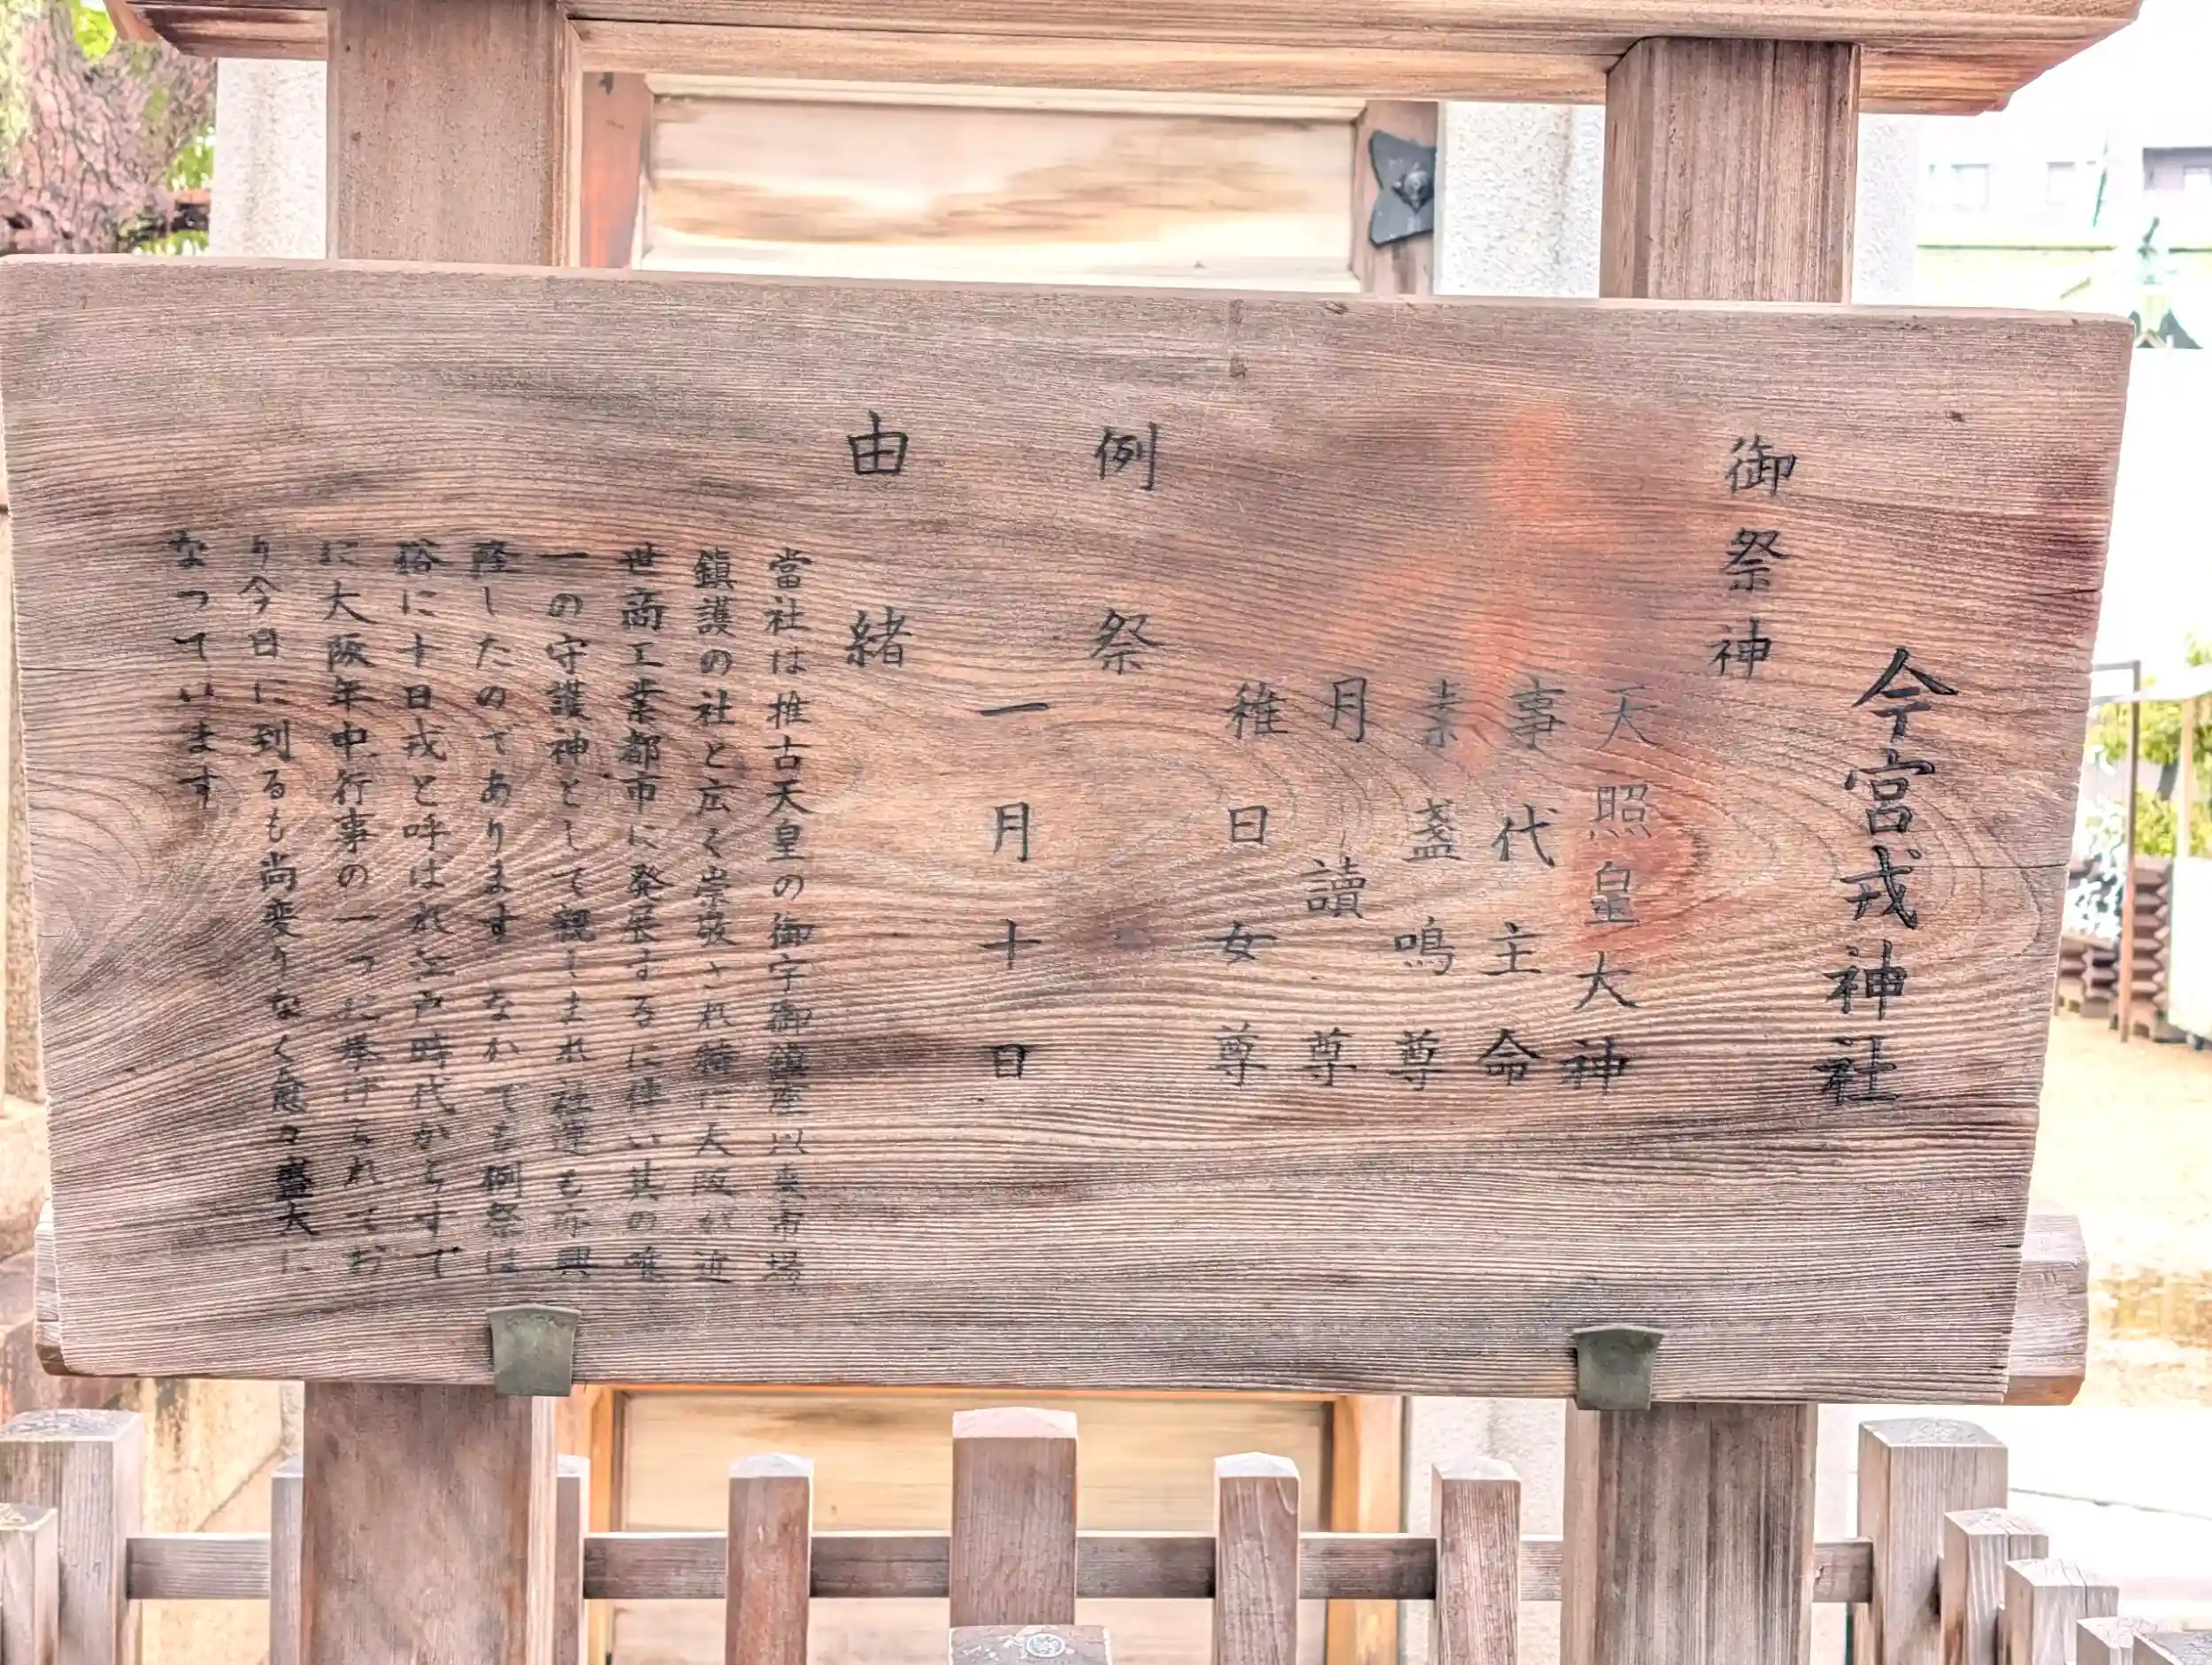 今宮戎神社
御祭神
天照皇大神
事代主命
素盞鳴尊
月讀尊
稚日女尊
例祭
一月十日
由緒
當社は推古天皇の御宇御鎮座以来市場
鎮護の社と広く崇敬され特に大阪が近
世商工業都市に発展するに伴い其の唯
一の守護神として親しまれ社運も亦興
隆したのであります なかでも例祭は
俗に十日戎と呼はれ 時代からすで
に大阪年中行事の一つに挙げられてお
り今日に到るも尚変りなく愈々盛大に
なつています